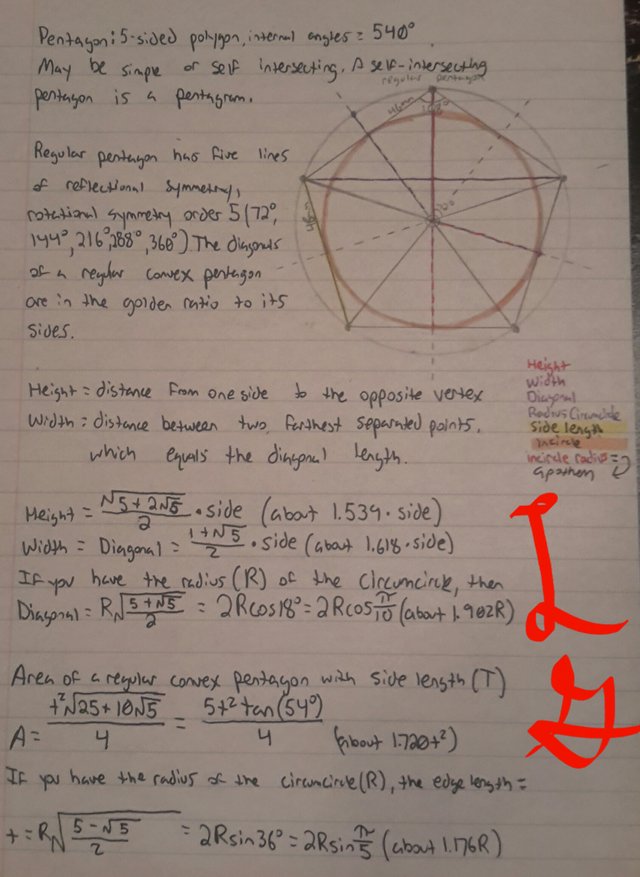 Pentagon: 5-sided polygon, internal angles = 540°
May be simple or self intersecting. A self-intersecting
pentagon is a pentagram.
regular pentagon
46mm
108°
Regular pentagon has five lines
of reflectional symmetry,
rotational symmetry order 5 (72°,
144°, 216°, 288°, 360°) The diagonals
of a regular convex pentagon
are in the golden ratio to its
sides.
46mm
Height
Width
Diagonal
Radius Circumcircle
Side length
incircle
incircle radius =
apothem
Height = distance from one side to the opposite vertex
Width = distance between two farthest separated points,
which equals the diagonal length.
Height = √5+2√5/2 · side (about 1.539 · side)
Width = Diagonal = 1+√5/2 · side (about 1.618 · side)
If you have the radius (R) of the circumcircle, then
Diagonal = R√5+√5/2 = 2Rcos18° = 2Rcos π/10 (about 1.902R)
Area of a regular convex pentagon with side length (T)
A = t²√25+10√5/4 = 5t² tan(54°)/4 (about 1.720t²)
If you have the radius of the circumcircle (R), the edge length =
t = R√5-√5/2 = 2Rsin36° = 2Rsin π/5 (about 1.176R)